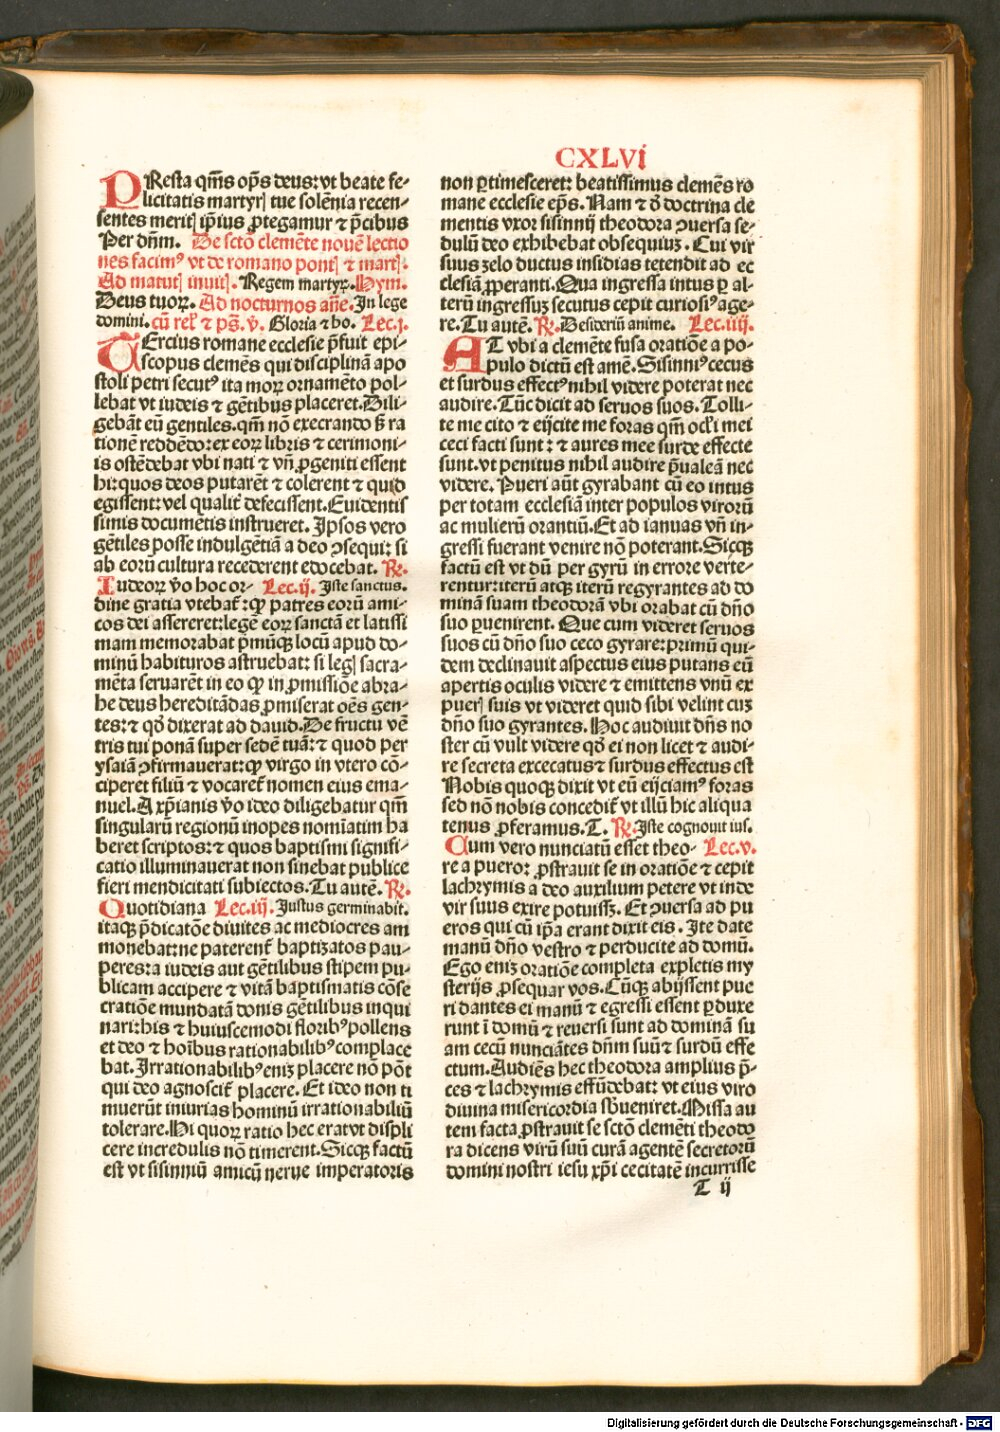 CXLVI
PResta qm̄s op̄s deus: vt beate fe-
licitatis martyrꝭ tue solēnia recen-
sentes meritꝭ ip̄ius ꝓtegamur ⁊ p̄cibus
Per dn̄m. De sctō clemēte nouē lectio
nes facimꝰ vt de romano pontꝭ ⁊ martꝭ.
Ad matutꝭ inuitꝭ. Regem martyꝝ. Hym.
Deus tuoꝝ. Ad nocturnos añe. In lege
domini. cū relꝭ ⁊ ps̄. v̄. Gloria ⁊ ho. Lec.j.
TErcius romane ecclesie p̄fuit epi-
scopus clemēs qui disciplinā apo
stoli petri secutꝰ ita moꝝ ornamēto pol-
lebat vt iudeis ⁊ gētibus placeret. Dili-
gebāt eū gentiles. qm̄ nō execrando ß ra
tionē reddēdo: ex eoꝝ libris ⁊ cerimoni-
is ostēdebat vbi nati ⁊ vn̄ ꝓgeniti essent
hi: quos deos putarēt ⁊ colerent ⁊ quid
egissent: vel qualit̄ defecissent. Euidentis
simis documētis instrueret. Ipsos vero
gētiles posse indulgētiā a deo ꝯsequi: si
ab eorū cultura recederent edocebat. ℟.
Iudeoꝝ v̄o hoc or- Lec.ij. Iste sanctus.
dine gratia vtebat̄: ꝙ patres eorū ami-
cos dei assereret: legē eoꝝ sanctā et latissi
mam memorabat p̄mūqꝫ locū apud do-
minū habituros astruebat: si legꝭ sacra-
mēta seruarēt in eo ꝙ in ꝓmissiōe abra-
he deus hereditādas ꝓmiserat oēs gen-
tes: ⁊ qđ dixerat ad dauid. De fructu vē
tris tui ponā super sedē tuā: ⁊ quod per
ysaiā ꝯfirmauerat: ꝙ virgo in vtero cō-
ciperet filiū ⁊ vocaret̄ nomen eius ema-
nuel. A xp̄ianis v̄o ideo diligebatur qm̄
singularū regionū inopes nomīatim ha
beret scriptos: ⁊ quos baptismi signifi-
catio illuminauerat non sinebat publice
fieri mendicitati subiectos. Tu autē. ℟.
Quotidiana Lec.iij. Iustus germinabit.
itaqꝫ p̄dicatōe diuites ac mediocres am
monebat: ne paterent̄ baptizatos pau-
peres: a iudeis aut gētilibus stipem pu-
blicam accipere ⁊ vitā baptismatis cōse
cratiōe mundatā donis gētilibus inqui
nari: his ⁊ huiuscemodi floribꝰ pollens
et deo ⁊ hoībus rationabilibꝰ complace
bat. Irrationabilibꝰ eniꝫ placere nō pōt
qui deo agnoscit̄ placere. Et ideo non ti
muerūt iniurias hominū irrationabiliū
tolerare. Ni quoꝝ ratio hec erat vt displi
cere incredulis nō timerent. Sicqꝫ factū
est vt sisinniū amicū nerue imperatoris
non ꝑtimesceret: beatissimus clemēs ro
mane ecclesie ep̄s. Nam ⁊ ð doctrina cle
mentis vxor sisinnij theodora ꝯuersa se-
dulū deo exhibebat obsequiuꝫ. Cui vir
suus zelo ductus insidias tetendit ad ec
clesiā ꝓperanti. Qua ingressa intus ꝑ al-
terū ingressuꝫ secutus cepit curiosiꝰ age-
re. Tu autē. ℟. Desideriū anime. Lec.iiij.
AT vbi a clemēte fusa oratiōe a po-
pulo dictū est amē. Sisinniꝰ cecus
et surdus effectꝰ nihil videre poterat nec
audire. Tūc dicit ad seruos suos. Tolli-
te me cito ⁊ eijcite me foras qm̄ ocl̄i mei
ceci facti sunt: ⁊ aures mee surde effecte
sunt. vt penitus nihil audire p̄ualeā nec
videre. Pueri aūt gyrabant cū eo intus
per totam ecclesiā inter populos virorū
ac mulierū orantiū. Et ad ianuas vn̄ in-
gressi fuerant venire nō poterant. Sicqꝫ
factū est vt dū per gyrū in errore verte-
rentur: iterū atqꝫ iterū regyrantes ad do
minā suam theodorā vbi orabat cū dn̄o
suo ꝑuenirent. Que cum videret seruos
suos cū dn̄o suo ceco gyrare: primū qui-
dem declinauit aspectus eius putans eū
apertis oculis videre ⁊ emittens vnū ex
puerꝭ suis vt videret quid sibi velint cuꝫ
dn̄o suo gyrantes. Hoc audiuit dn̄s no
ster cū vult videre qđ ei non licet ⁊ audi-
re secreta excecatus ⁊ surdus effectus est
Nobis quoqꝫ dixit vt eū eijciamꝰ foras
sed nō nobis concedit̄ vt illū hic aliqua
tenus ꝓferamus. T. ℟. Iste cognouit ius.
Cum vero nunciatū esset theo- Lec.v.
re a puero: ꝓstrauit se in oratiōe ⁊ cepit
lachrymis a deo auxilium petere vt inde
vir suus exire potuissꝫ. Et ꝯuersa ad pu
eros qui cū ip̄a erant dixit eis. Ite date
manū dn̄o vestro ⁊ perducite ad domū.
Ego eniꝫ oratiōe completa expletis my
sterijs ꝓsequar vos. Cūqꝫ abijssent pue
ri dantes ei manū ⁊ egressi essent ꝑduxe
runt ī domū ⁊ reuersi sunt ad dominā su
am cecū nunciātes dn̄m suū ⁊ surdū effe
ctum. Audiēs hec theodora amplius p̄-
ces ⁊ lachrymis effūdebat: vt eius viro
diuina misericordia sƀueniret. Missa au
tem facta ꝓstrauit se sctō clemēti theodo
ra dicens virū suū curā agentē secretorū
domini nostri iesu xp̄i cecitatē incurrisse
T ij
Digitalisierung gefördert durch die Deutsche Forschungsgemeinschaft - DFG